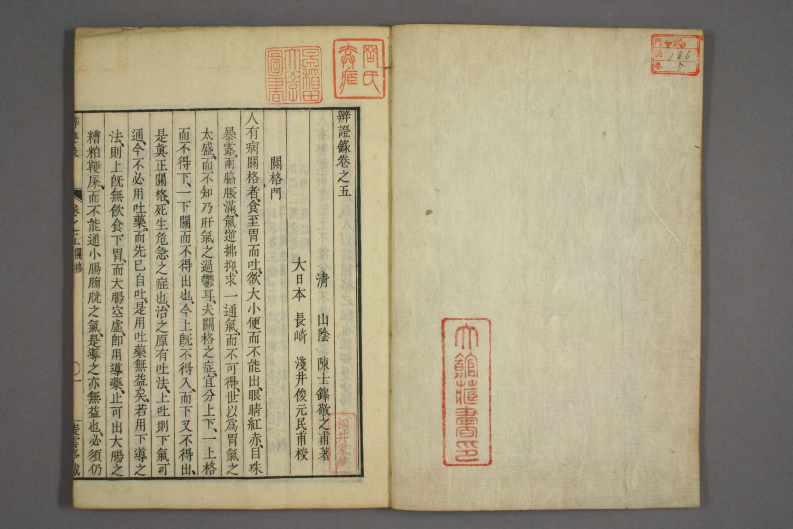 辨證錄卷之五
清 山陰 陳士鐸敬之甫著
大日本 長崎 淺井俊元民甫校
關格門
人有病關格者、食至胃而吐、欲大小便而不能出、眼睛紅赤、目珠
暴露、兩脇脹滿、氣逆拂抑、求一通氣、而不可得、世以爲胃氣之
太盛、而不知乃肝氣之過鬱耳、夫關格之症、宜分上下、一上格
而不得下、一下關而不得出也、今上旣不得入、而下又不得出、
是眞正關格、死生危急之症也、治之原有吐法、上吐則下氣可
通、今不必用吐藥、而先已自吐、是用吐藥無益矣、若用下導之
法、則上旣無飮食下胃、而大腸空虛、卽用導藥、止可出大腸之
糟粕硬屎、而不能通小腸膀胱之氣、是導之亦無益也、必須仍
卷之五 關格
〇一
大館藏書印
早稻田大學圖書